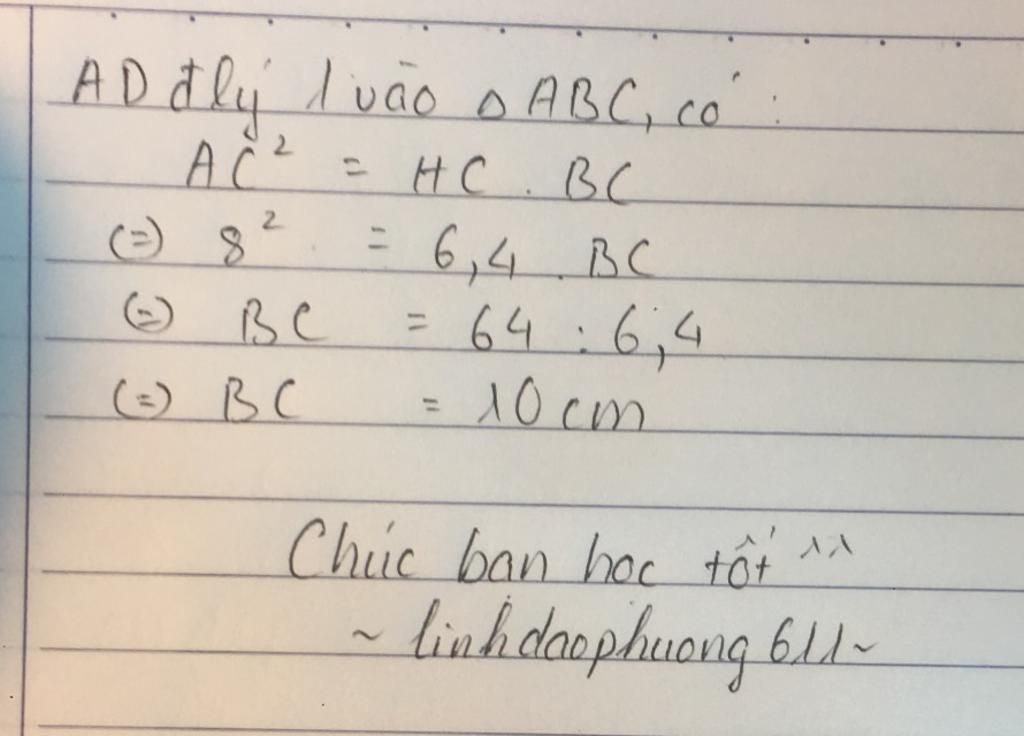 AD đlý 1 vào △ ABC, có :
AC² = HC . BC
(=) 8² = 6,4 . BC
(=) BC = 64 : 6,4
(=) BC = 10 cm
Chúc bạn học tốt ^^
~ linhdaophuong611 ~